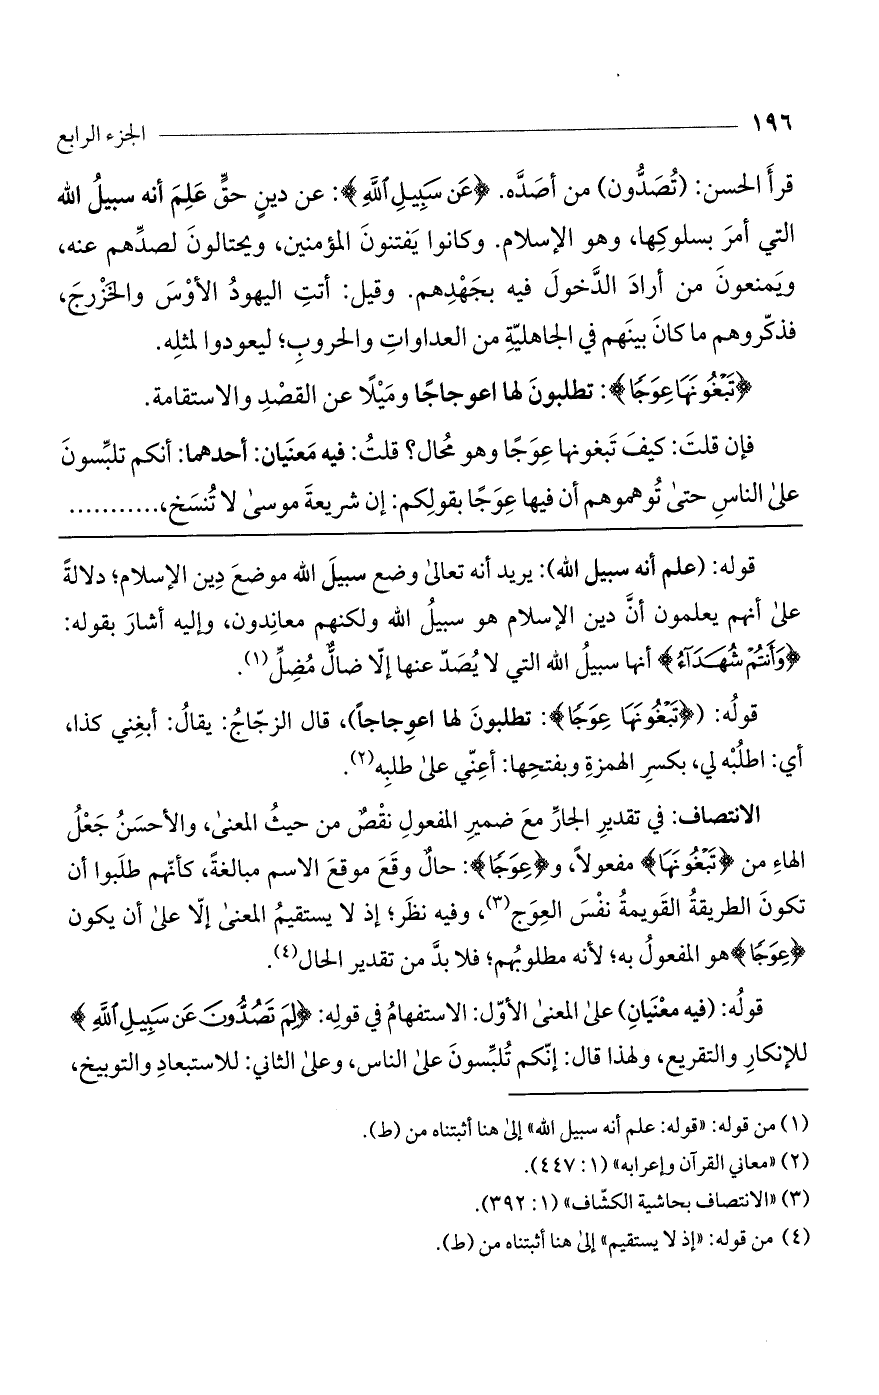 ١٩٦ الجزء الرابع
قرأَ الحسن: (تُصَدُّون) من أصَدَّه. ﴿عَن سَبِيلِ ٱللَّهِ﴾: عن دينِ حقٍّ عَلِمَ أنه سبيلُ الله
التي أمرَ بسلوكِها، وهو الإسلام. وكانوا يَفتنونَ المؤمنين، ويحتالونَ لصدِّهم عنه،
ويَمنعونَ من أرادَ الدَّخولَ فيه بجَهْدِهم. وقيل: أتتِ اليهودُ الأوْسَ والخَزْرجَ،
فذكّروهم ما كانَ بينَهم في الجاهليّةِ من العداواتِ والحروبِ؛ ليعودوا لمثلِه.
﴿تَبْغُونَهَا عِوَجًا﴾: تطلبونَ لها اعوجاجًا ومَيْلًا عن القصْدِ والاستقامة.
فإن قلتَ: كيفَ تَبغونها عِوَجًا وهو مُحال؟ قلتُ: فيه مَعنَيان: أحدهما: أنكم تلبِّسونَ
علىٰ الناسِ حتىٰ تُوهموهم أن فيها عِوَجًا بقولِكم: إن شريعةَ موسىٰ لا تُنسَخ،...........
قوله: (علم أنه سبيل الله): يريد أنه تعالىٰ وضع سبيلَ الله موضعَ دِين الإسلام؛ دلالةً
علىٰ أنهم يعلمون أنَّ دين الإسلام هو سبيلُ الله ولكنهم معانِدون، وإليه أشارَ بقوله:
﴿وَأَنتُمْ شُهَدَآءُ﴾ أنها سبيلُ الله التي لا يُصَدّ عنها إلّا ضالٌّ مُضِلٌّ(١).
قولُه: (﴿تَبْغُونَهَا عِوَجًا﴾: تطلبونَ لها اعوِجاجاً)، قال الزجّاجُ: يقالُ: أبغِني كذا،
أي: اطلُبْه لي، بكسرِ الهمزةِ وبفتحِها: أعِنّي علىٰ طلبِه(٢).
الانتصاف: في تقديرِ الجارِّ معَ ضميرِ المفعولِ نقْصٌ من حيثُ المعنىٰ، والأحسَنُ جَعْلُ
الهاءِ من ﴿تَبْغُونَهَا﴾ مفعولاً، و﴿عِوَجًا﴾: حالٌ وقَعَ موقعَ الاسم مبالغةً، كأنّهم طلَبوا أن
تكونَ الطريقةُ القَويمةُ نفْسَ العِوَج(٣)، وفيه نظَر؛ إذ لا يستقيمُ المعنىٰ إلّا علىٰ أن يكون
﴿عِوَجًا﴾ هو المفعولُ به؛ لأنه مطلوبُهم؛ فلا بدَّ من تقدير الحال(٤).
قولُه: (فيه معْنَيانِ) علىٰ المعنىٰ الأوّل: الاستفهامُ في قولِه: ﴿لِمَ تَصُدُّونَ عَن سَبِيلِ ٱللَّهِ﴾
للإنكارِ والتقريع، ولهذا قال: إنّكم تُلبِّسونَ علىٰ الناس، وعلىٰ الثاني: للاستبعادِ والتوبيخ،
(١) من قوله: «قوله: علم أنه سبيل الله» إلىٰ هنا أثبتناه من (ط).
(٢) «معاني القرآن وإعرابه» (١: ٤٤٧).
(٣) «الانتصاف بحاشية الكشّاف» (١: ٣٩٢).
(٤) من قوله: «إذ لا يستقيم» إلىٰ هنا أثبتناه من (ط).